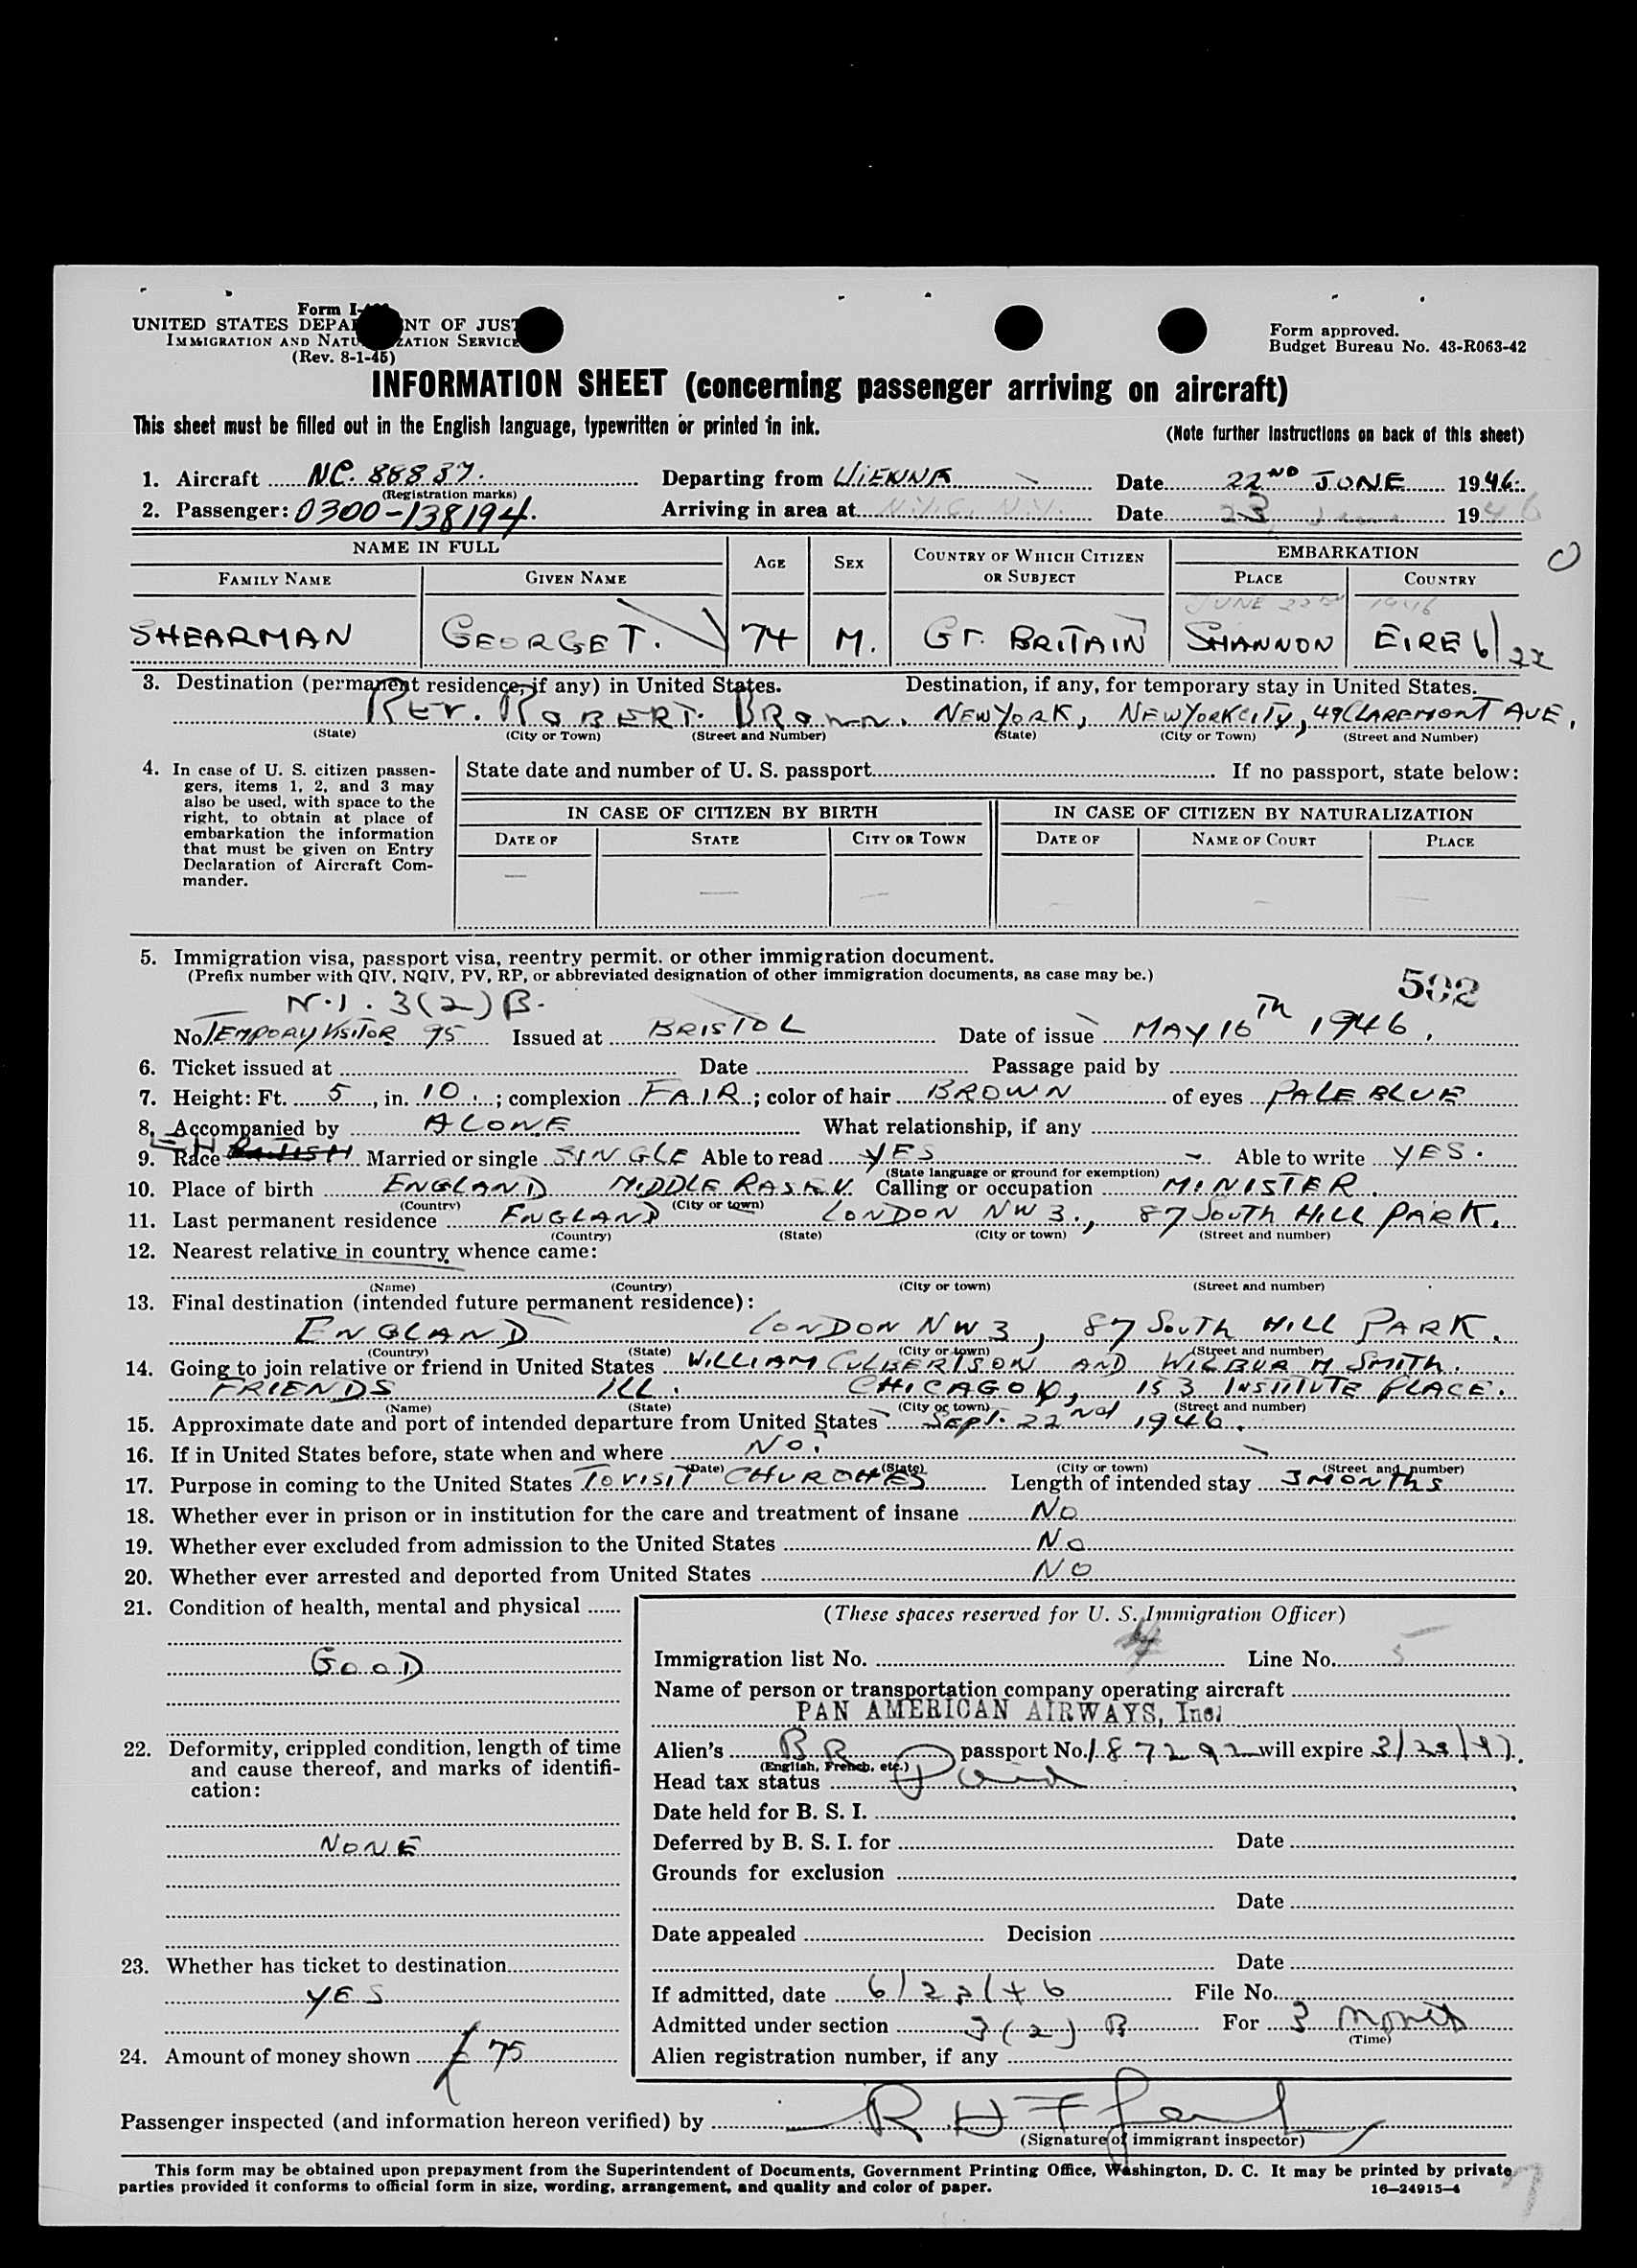 Form I-
UNITED STATES DEPA NT OF JUST
IMMIGRATION AND NATU ZATION SERVICE
(Rev. 8-1-45)
Form approved.
Budget Bureau No. 43-R063-42
INFORMATION SHEET (concerning passenger arriving on aircraft)
This sheet must be filled out in the English language, typewritten or printed in ink.
(Note further instructions on back of this sheet)
1. Aircraft NC. 88837. Departing from VIENNA Date 22ND JUNE 1946.
(Registration marks)
2. Passenger: 0300-138194. Arriving in area at N.Y.C. N.Y. Date 23 June 1946
NAME IN FULL AGE SEX COUNTRY OF WHICH CITIZEN OR SUBJECT EMBARKATION
FAMILY NAME GIVEN NAME PLACE COUNTRY
JUNE 22nd 1946
SHEARMAN GEORGE T. 74 M. GT. BRITAIN SHANNON EIRE 6/22
3. Destination (permanent residence, if any) in United States. Destination, if any, for temporary stay in United States.
REV. ROBERT. BROWN. NEW YORK, NEW YORK CITY, 49 CLAREMONT AVE,
(State) (City or Town) (Street and Number) (State) (City or Town) (Street and Number)
4. In case of U. S. citizen passen-
gers, items 1, 2, and 3 may
also be used, with space to the
right, to obtain at place of
embarkation the information
that must be given on Entry
Declaration of Aircraft Com-
mander.
State date and number of U. S. passport If no passport, state below:
IN CASE OF CITIZEN BY BIRTH IN CASE OF CITIZEN BY NATURALIZATION
DATE OF STATE CITY OR TOWN DATE OF NAME OF COURT PLACE
5. Immigration visa, passport visa, reentry permit. or other immigration document.
(Prefix number with QIV, NQIV, PV, RP, or abbreviated designation of other immigration documents, as case may be.)
502
N.I. 3(2) B.
No. TEMPORY VISITOR 95 Issued at BRISTOL Date of issue MAY 16TH 1946.
6. Ticket issued at Date Passage paid by
7. Height: Ft. 5, in. 10.; complexion FAIR; color of hair BROWN of eyes PALE BLUE
8. Accompanied by ALONE What relationship, if any
9. Race BRITISH Married or single SINGLE Able to read YES Able to write YES.
(State language or ground for exemption)
10. Place of birth ENGLAND MIDDLE RASEN. Calling or occupation MINISTER.
(Country) (City or town)
11. Last permanent residence ENGLAND LONDON NW 3., 87 SOUTH HILL PARK.
(Country) (State) (City or town) (Street and number)
12. Nearest relative in country whence came:
(Name) (Country) (City or town) (Street and number)
13. Final destination (intended future permanent residence):
ENGLAND LONDON NW 3, 87 SOUTH HILL PARK.
(Country) (State) (City or town) (Street and number)
14. Going to join relative or friend in United States WILLIAM CULBERTSON AND WILBUR M SMITH.
FRIENDS ILL. CHICAGO 10, 153 INSTITUTE PLACE.
(Name) (State) (City or town) (Street and number)
15. Approximate date and port of intended departure from United States Sept. 22nd 1946.
16. If in United States before, state when and where No.
(Date) (State) (City or town) (Street and number)
17. Purpose in coming to the United States TO VISIT CHURCHES Length of intended stay 3 MONTHS
18. Whether ever in prison or in institution for the care and treatment of insane NO
19. Whether ever excluded from admission to the United States NO
20. Whether ever arrested and deported from United States NO
21. Condition of health, mental and physical
GOOD
22. Deformity, crippled condition, length of time
and cause thereof, and marks of identifi-
cation:
NONE
23. Whether has ticket to destination
YES
24. Amount of money shown £ 75
(These spaces reserved for U. S. Immigration Officer)
Immigration list No. Line No. 5
Name of person or transportation company operating aircraft
PAN AMERICAN AIRWAYS, Inc.
Alien's BR passport No. 187292 will expire 3/28/47.
(English, French, etc.)
Head tax status Paid
Date held for B. S. I.
Deferred by B. S. I. for Date
Grounds for exclusion
Date
Date appealed Decision
Date
If admitted, date 6/22/46 File No.
Admitted under section 3(2) B For 3 Months
(Time)
Alien registration number, if any
Passenger inspected (and information hereon verified) by
(Signature of immigrant inspector)
This form may be obtained upon prepayment from the Superintendent of Documents, Government Printing Office, Washington, D. C. It may be printed by private
parties provided it conforms to official form in size, wording, arrangement, and quality and color of paper. 16—24915-4